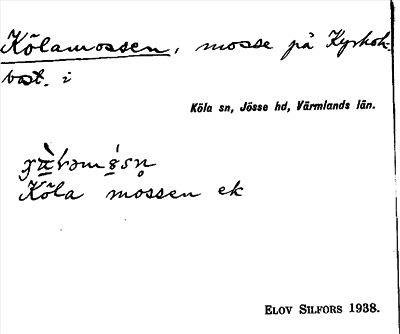 Kölamossen, mosse på Kyrkoh-
bost. i
Köla sn, Jösse hd, Värmlands län.
Köla mossen ek
ELOV SILFORS 1938.